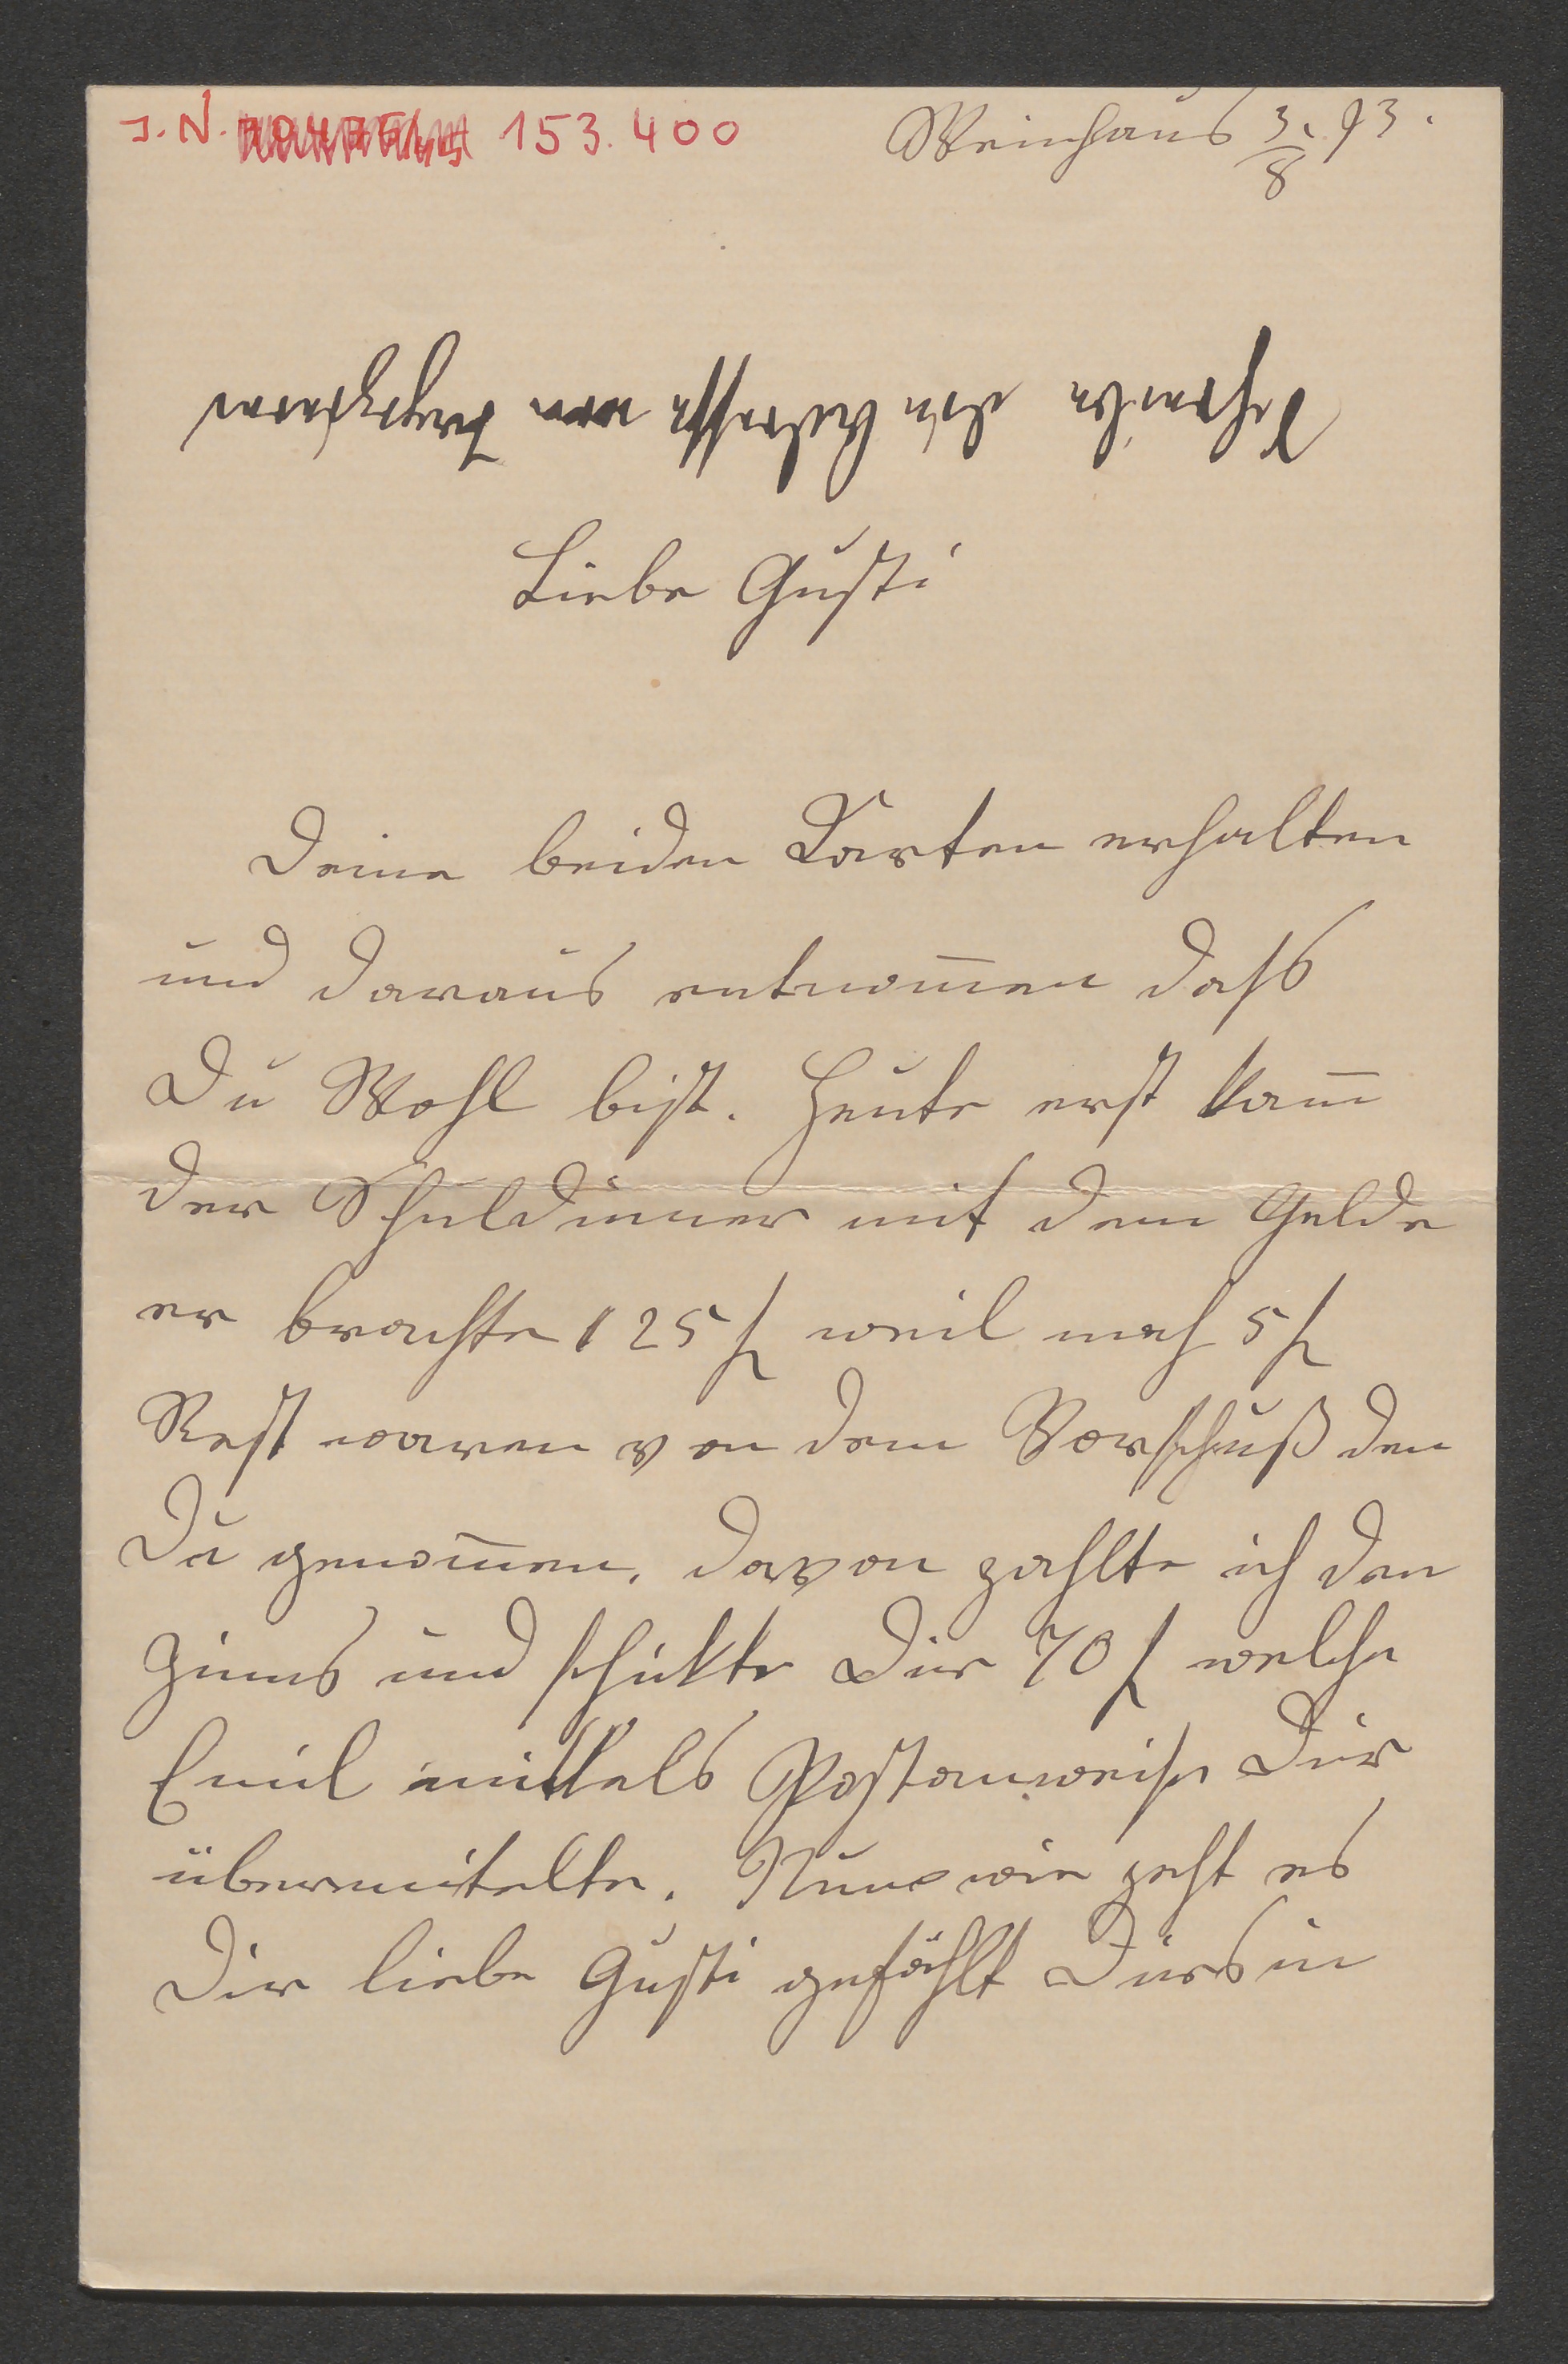 J. N. 153.400
Weinhaus 3./8 93.
Schreibe die Adresse von
Liebe Gusti
Deine beiden Karten erhalten
und daraus entnom̅en daß
Du Wohl bist. Heute erst kam̅
der Schuldinner mit dem Gelde
er brachte 125 f weil noch 5 f
Rest waren von dem Vorschuß den
Du genom̅en. davon zahlte ich den
Zinns und schikte Dir 70 f welche
Emil mittels Postanweise Dir
übermitelte. Nun wie geht es
Dir liebe Gusti gefählt Dirs in